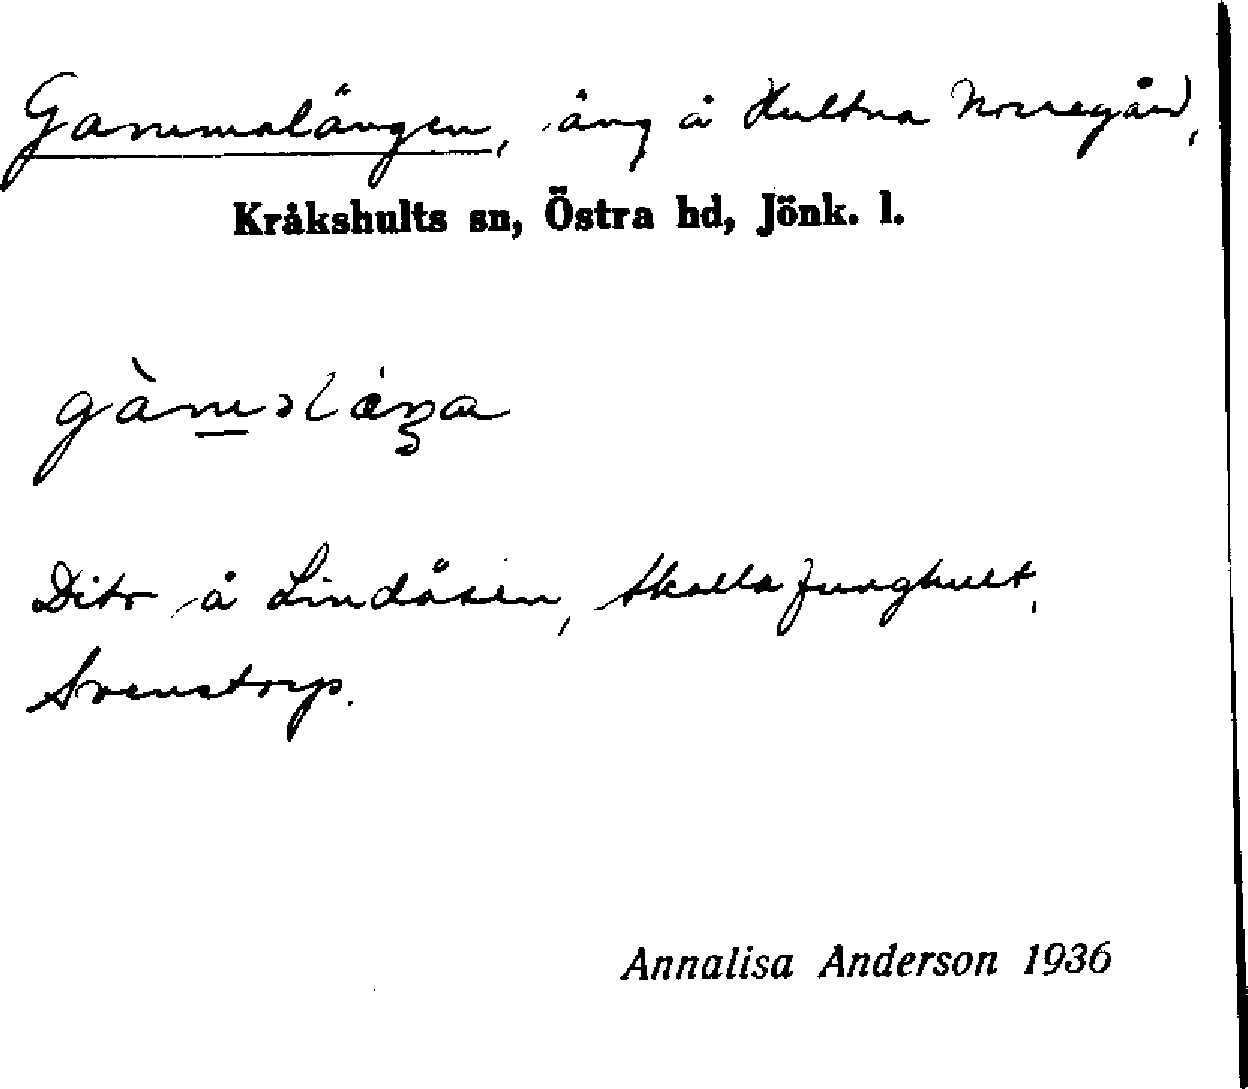 Gammalängen, äng å Hultna Norregård,
Kråkshults sn, Östra hd, Jönk. l.
Dito å Lindåsen, Skalla Ljunghult,
Svenstorp.
Annalisa Anderson 1936